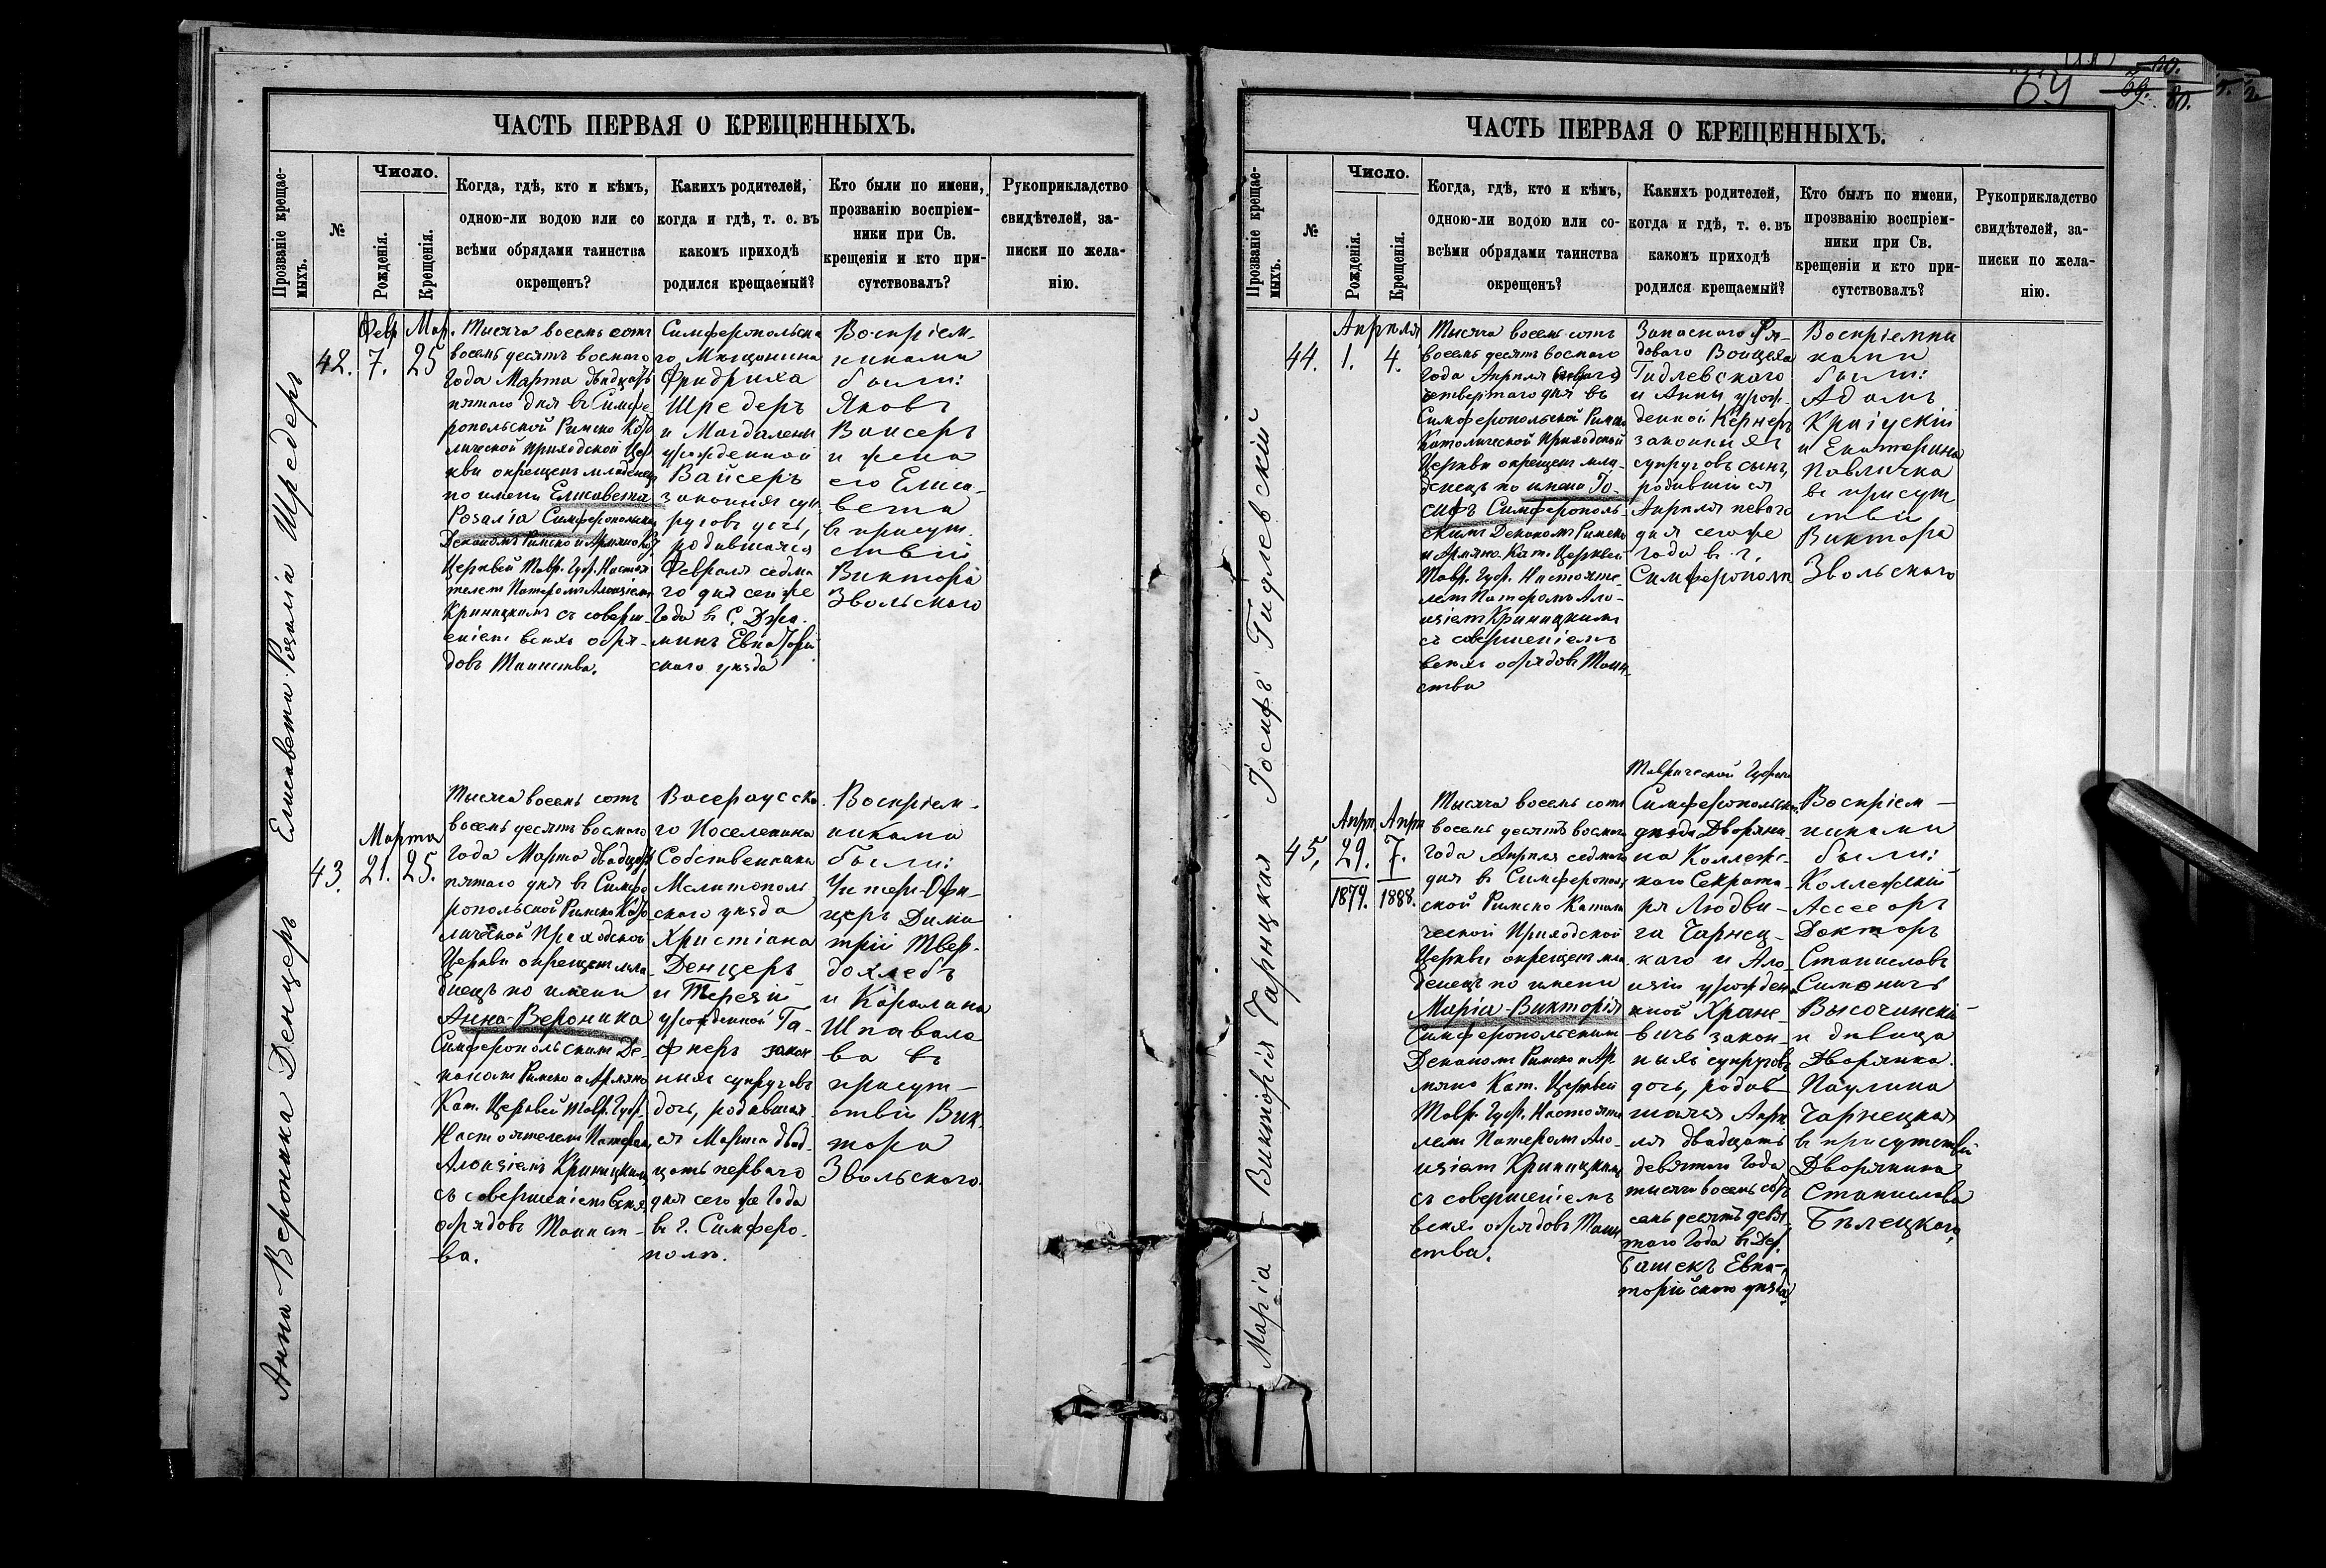 ЧАСТЬ ПЕРВАЯ О КРЕЩЕННЫХЪ.
Прозваніе крещае-
мыхъ.
№
Число.
Рожденія.
Крещенія.
Когда, гдѣ, кто и кѣмъ,
одною-ли водою или со
всѣми обрядами таинства
окрещенъ?
Какихъ родителей,
когда и гдѣ, т. е. въ
какомъ приходѣ
родился крещаемый?
Кто были по имени,
прозванію воспріем-
ники при Св.
крещеніи и кто при-
сутствовалъ?
Рукоприкладство
свидѣтелей, за-
писки по жела-
нію.
Елисавета-Розалія Шредеръ
42.
Февр. Мар.
7. 25
Тысяча восемь сотъ
восемь десятъ восмого
Года Марта двадцать
пятаго дня въ Симфе
ропольской Римско Като
лической Приходской Цер
кви окрещенъ младенецъ
по имени Елисавета
Розалія Симферопольским
Деканомъ Римско и Армяно Кат.
Церквей Тавр. Губ. Настоя
телемъ Патеромъ Алоизіем
Криницкимъ съ соверш-
еніемъ всѣхъ обря-
довъ Таинства.
Симферопольска
го Мѣщанина
Фридриха
Шредеръ
и Магдалены
урожденной
Вайсеръ
законныхъ суп
руговъ дочь,
родившаяся
Февраля седма
го дня сего же
Года въ С. Джа.
минъ Евпаторій
скаго уѣзда
Воспріем-
никами
были:
Яковъ
Вайсеръ
и жена
его Елиса-
вета
въ присут.
ствіи
Виктора
Звольскаго
Анна-Вероника Денцеръ
43.
Марта
21. 25.
Тысяча восемь сотъ
восемь десятъ восмого
Года Марта двадцать
пятаго дня въ Симфе
ропольской Римско Като
лической Приходской
Церкви окрещенъ мла
денецъ по имени
Анна-Вероника
Симферопольскимъ Де-
каномъ Римско и Армяно
Кат. Церквей Тавр. Губ.
Настоятелемъ Патеромъ
Алоизіемъ Криницкимъ
съ совершеніемъ всѣхъ
обрядовъ Таинст-
ва.
го Поселенина
Собственника
Мелитополь
скаго уѣзда
Христіана
Денцеръ
и Терезіи
урожденной Га-
фнеръ закон
ныхъ супруговъ
дочь, родившая
ся Марта двад-
цать перваго
дня сего же Года
въ г. Симферо.
полѣ.
Воспріем-
никами
были:
Унтеръ-Офи-
церъ Дими
трій Твер-
дохлебъ
и Каролина
Шпавало
ва въ
присут-
ствіи Вик.
тора
Звольскаго.
69
ЧАСТЬ ПЕРВАЯ О КРЕЩЕННЫХЪ.
Прозваніе крещае-
мыхъ.
№
Число.
Рожденія.
Крещенія.
Когда, гдѣ, кто и кѣмъ,
одною-ли водою или со-
всѣми обрядами таинства
окрещенъ?
Какихъ родителей,
когда и гдѣ, т. е. въ
какомъ приходѣ
родился крещаемый?
Кто былъ по имени,
прозванію воспріем-
ники при Св.
крещеніи и кто при-
сутствовалъ?
Рукоприкладство
свидѣтелей, за-
писки по жела-
нію.
Іосифъ Гидлевскій
44.
Апрѣля
1. 4.
Тысяча восемь сотъ
восемь десятъ восмого
Года Апрѣля
четвертаго дня въ
Симферопольской Римско
Католической Приходской
Церкви окрещенъ мла-
денецъ по имени Іо-
сифъ Симферополь-
скимъ Деканомъ Римско
и Армяно-Кат. Церквей
Тавр. Губ. Настояте-
лемъ Патеромъ Ало-
изіемъ Криницкимъ
съ совершеніемъ
всѣхъ обрядовъ Таин-
ства
Запаснаго Ря-
доваго Войцеха
Гидлевскаго
и Анны урож-
денной Кернеръ
законныхъ
супруговъ сынъ,
родившійся
Апрѣля перваго
дня сего же
Года въ г.
Симферополѣ
Воспріемни
ками
были:
Адамъ
и Екатерина
Павличка
въ присут
ствіи
Виктора
Звольскаго
Марія-Викторія Чарнецкая
45.
Апрѣ. Апрѣ
29. 7.
1879. 1888.
Тысяча восемь сотъ
восемь десятъ восмого
Года Апрѣля седмаго
дня въ Симферополь
ской Римско Катол
ической Приходской
Церкви окрещенъ мла
денецъ по имени
Марія-Викторія
Симферопольскимъ
Деканомъ Римско и Ар
мяно Кат. Церквей
Тавр. Губ. Настояте
лемъ Патеромъ Ало-
изіемъ Криницкимъ
съ совершеніемъ
всѣхъ обрядовъ Таин
ства.
Таврической Губерни
Симферопольск.
уѣзда Дворяни
на Коллежс-
каго Секрета-
ря Людви-
га Чарнец-
каго и Ало-
изіи урожден
ной Хране-
вичъ закон-
ныхъ супруговъ
дочь, родив
шаяся Апрѣ
ля двадцать
девятаго Года
тысяча восемь сотъ
семь десятъ девя-
таго Года въ Дер.
Башекъ Евпа-
торійскаго уѣзда
Воспріем-
никами
были:
Коллежскій
Ассесоръ
Докторъ
Станиславъ
Симоничъ
Височинскій-
и дѣвица
Дворянка
Паулина
Чарнецкая
въ присутствіи
Дворянина
Станислава
Бѣлецкаго,